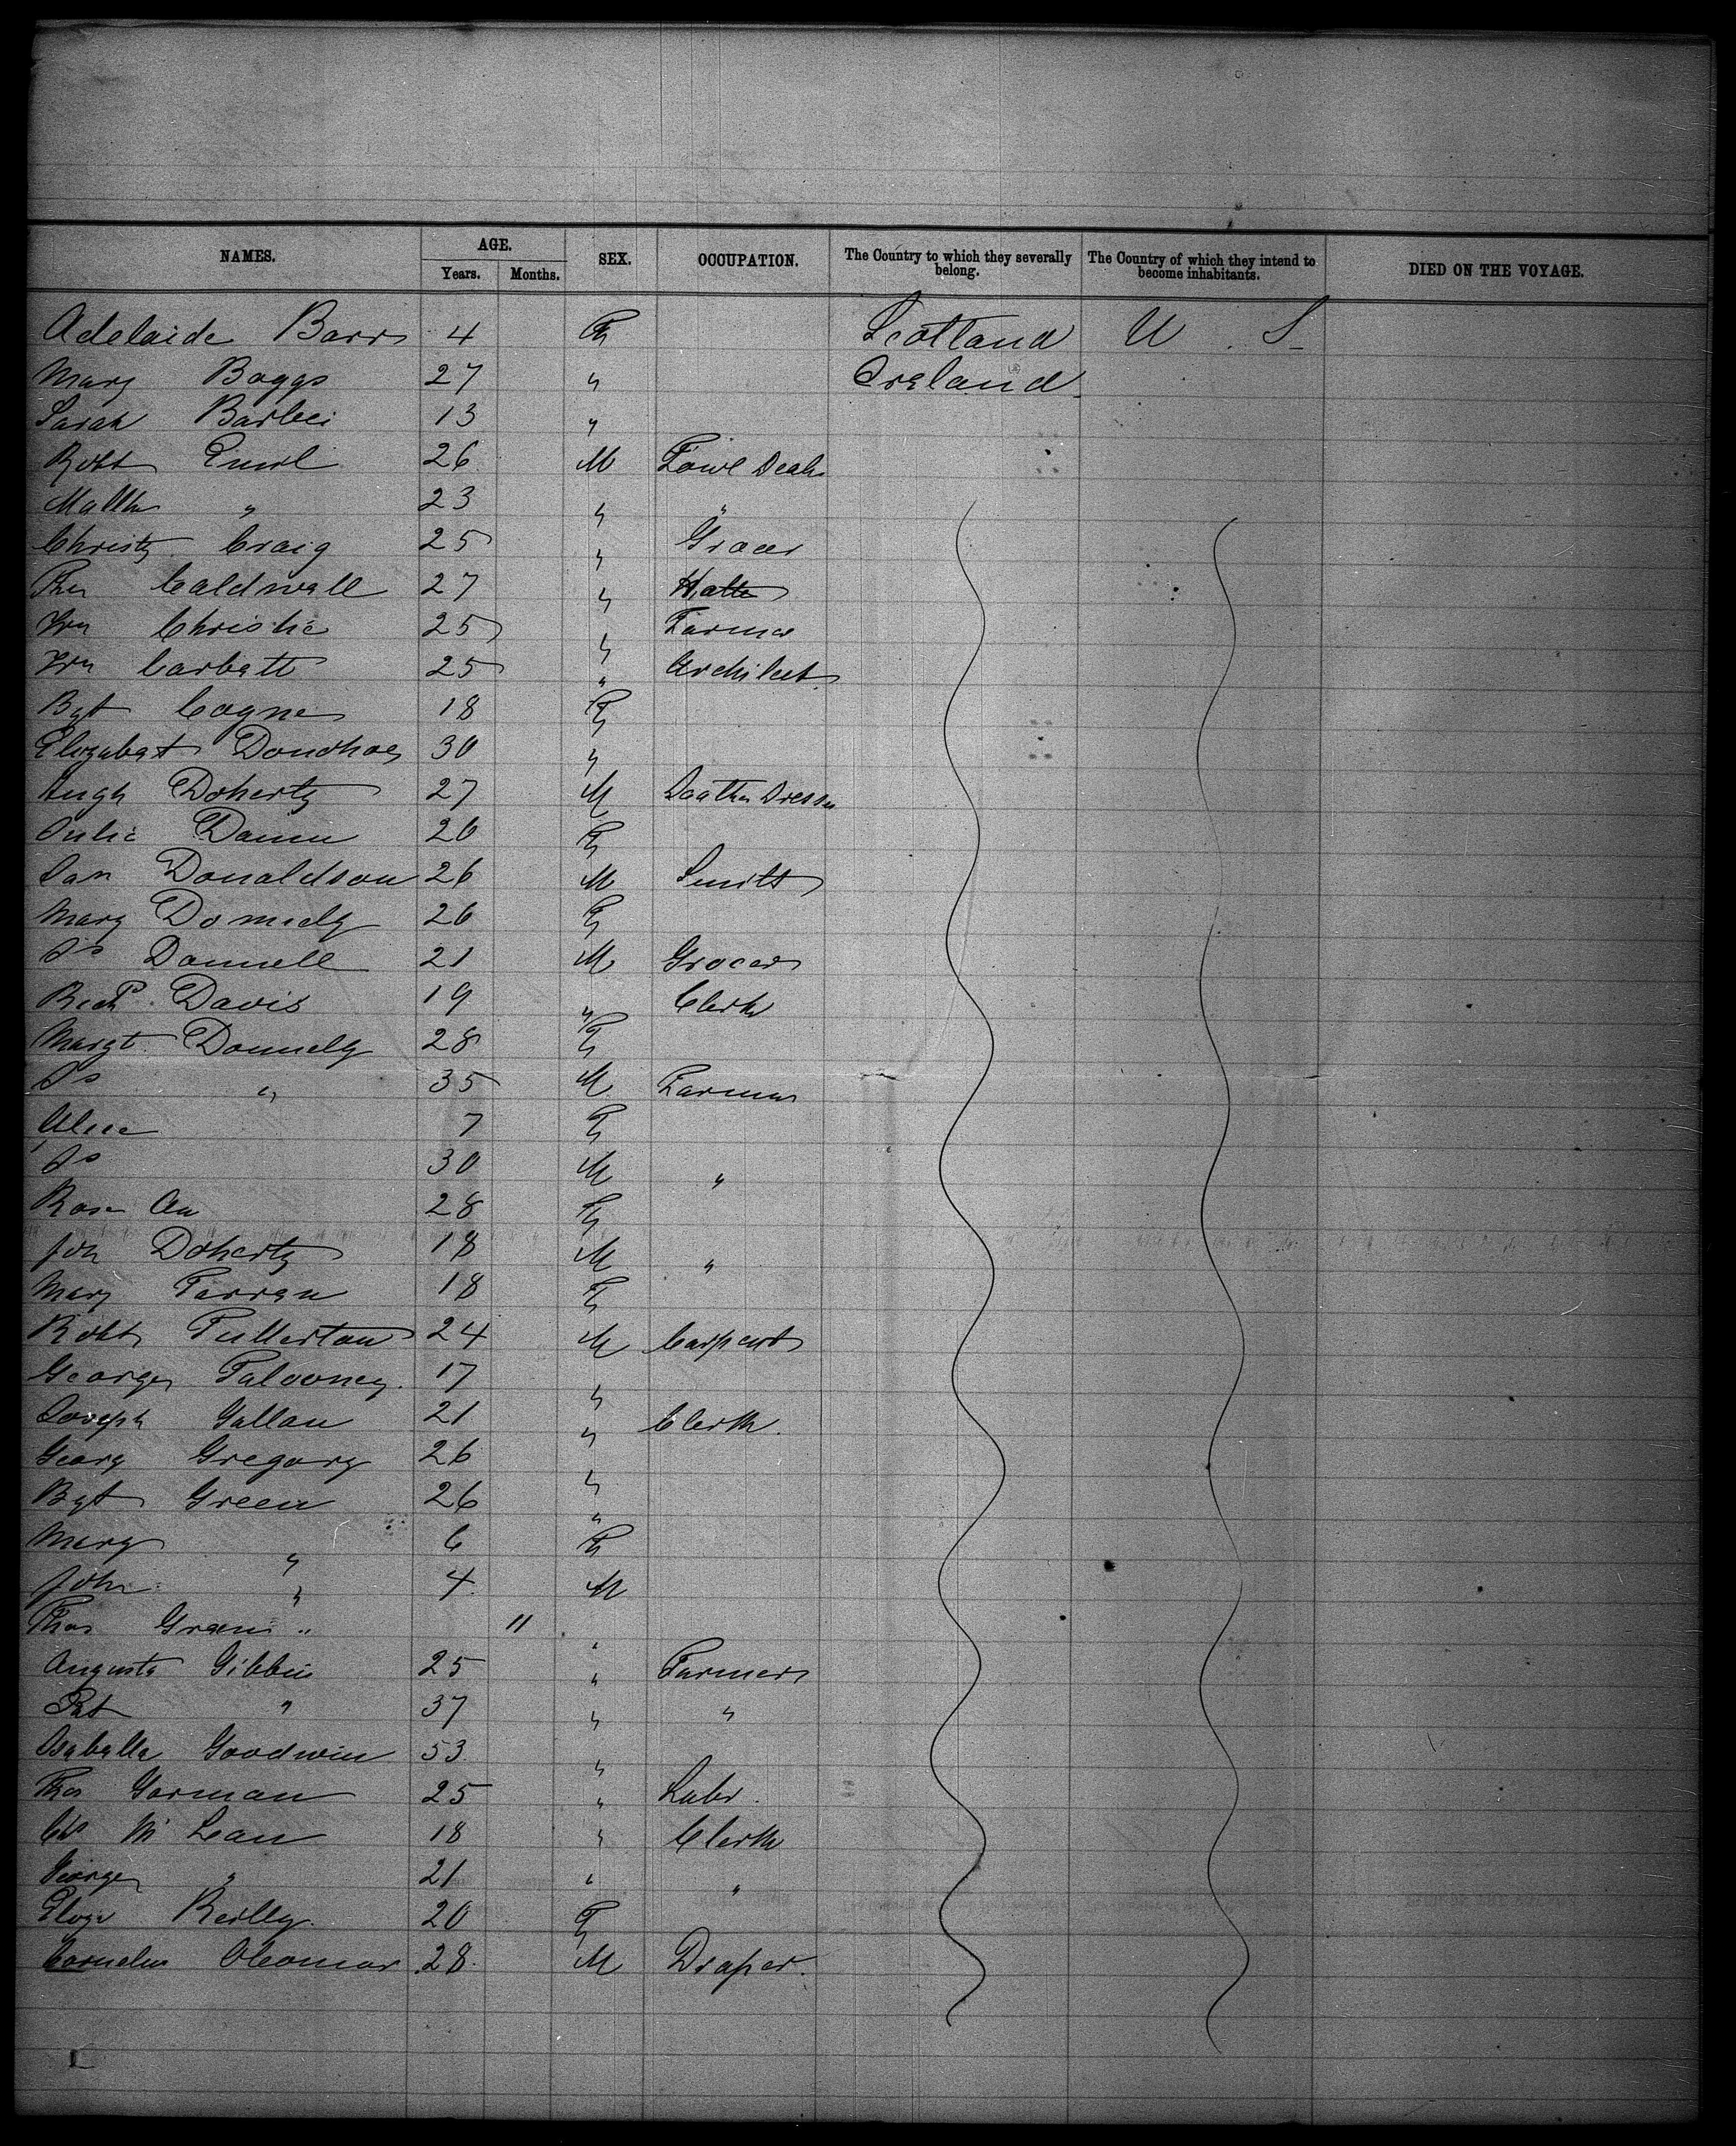 NAMES. AGE. SEX. OCCUPATION. The Country to which they severally belong. The Country of which they intend to become inhabitants. DIED ON THE VOYAGE.
Years. Months.
Adelaide Barr 4 F Scotland U. S.
Mary Boggs 27 " Ireland
Sarah 13 "
Robt 26 M
" 23 " "
Christy Craig 25 " Grocer
Caldwell 27 "
Wm Christie 25 " Farmer
Wm Corbett 25 " Architect
Bgt Coyne 18 F
Elizabet Donohoe 30 "
Hugh Doherty 27 M Leather Dresser
Julia 20 F
Jas Donaldson 26 M Smith
Mary 26 F
Js Donnell 21 M Grocer
Richd Davis 19 " Clerk
Margt Donnelly 28 F
Js " 35 M Farmer
Alice 7 F
Js 30 M "
Rose An 28 F
Jon Doherty 18 M "
Mary Farren 18 F
Robt Fullerton 24 M Carpent
George Falooney. 17 "
Joseph Gallan 21 " Clerk.
Georg Gregory 26 "
Bgt Green 26 "
Mary " 6 F
John " 4 M
Thos Green " 11 "
Augusta Gibbin 25 " Farmer
Pat " 37 " "
Isabella Goodwin 53 "
Thos Gorman 25 " Labr.
Mc Lean 18 " Clerk
George " 21 " "
Eliza Reilly. 20 F
Cornelius OConnor 28 M Draper.